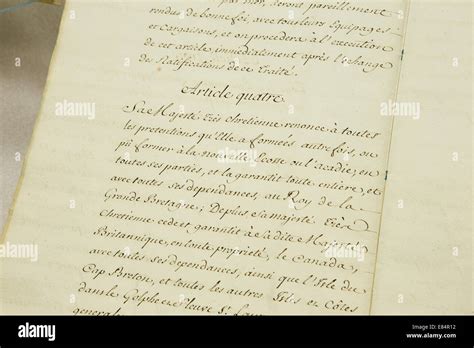 par mer, seront pareillement
rendus de bonne foi, avec tous leurs Equipages
et Cargaisons; et on procedera à l'execution
de cet article, immediatement après l'echange
des Ratifications de ce Traité.
Article quatre.
Sa Majesté Très Chretienne renonce à toutes
les pretentions qu'Elle a formées autre fois, ou
pû former à la nouvelle Ecosse ou l'acadie, en
toutes ses parties, et la garantit toute entière, et
avec toutes ses dependances, au Roy de la
Grande Bretagne; De plus, Sa majesté Très
Chretienne cede et garantit à Sa dite Majesté
Britannique, en toute proprieté, le Canada,
avec toutes ses dependances, ainsi que l'Isle du
Cap Breton, et toutes les autres Isles et Côtes
dans le Golphe et Fleuve St. Lau
general
alamy
alamy
alamy
alamy
alamy stock photo
E84R12
www.alamy.com